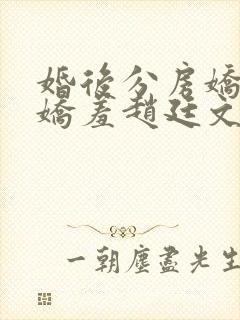 婚後分房嬌
嬌羞趙廷文
一朝塵盡光生